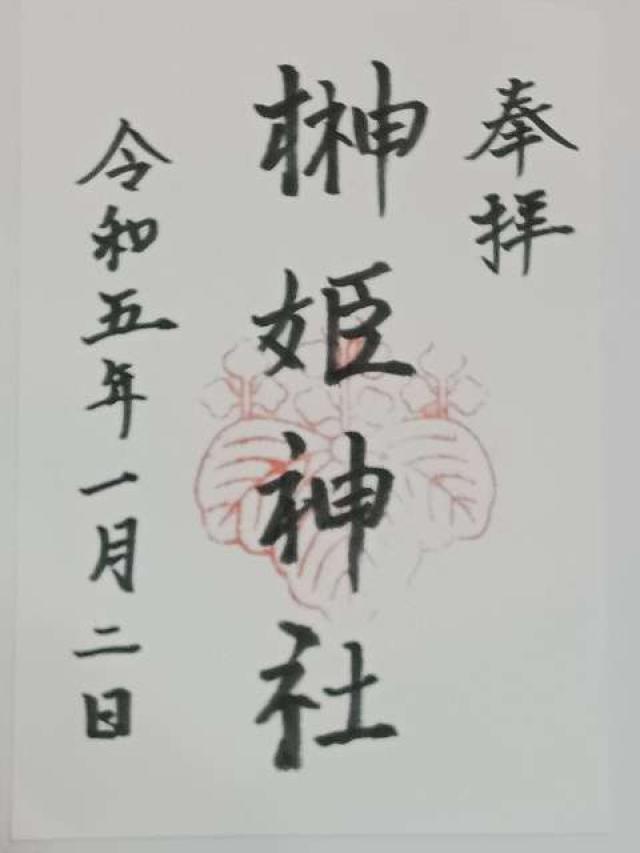 奉拝
榊姫神社
令和五年一月二日